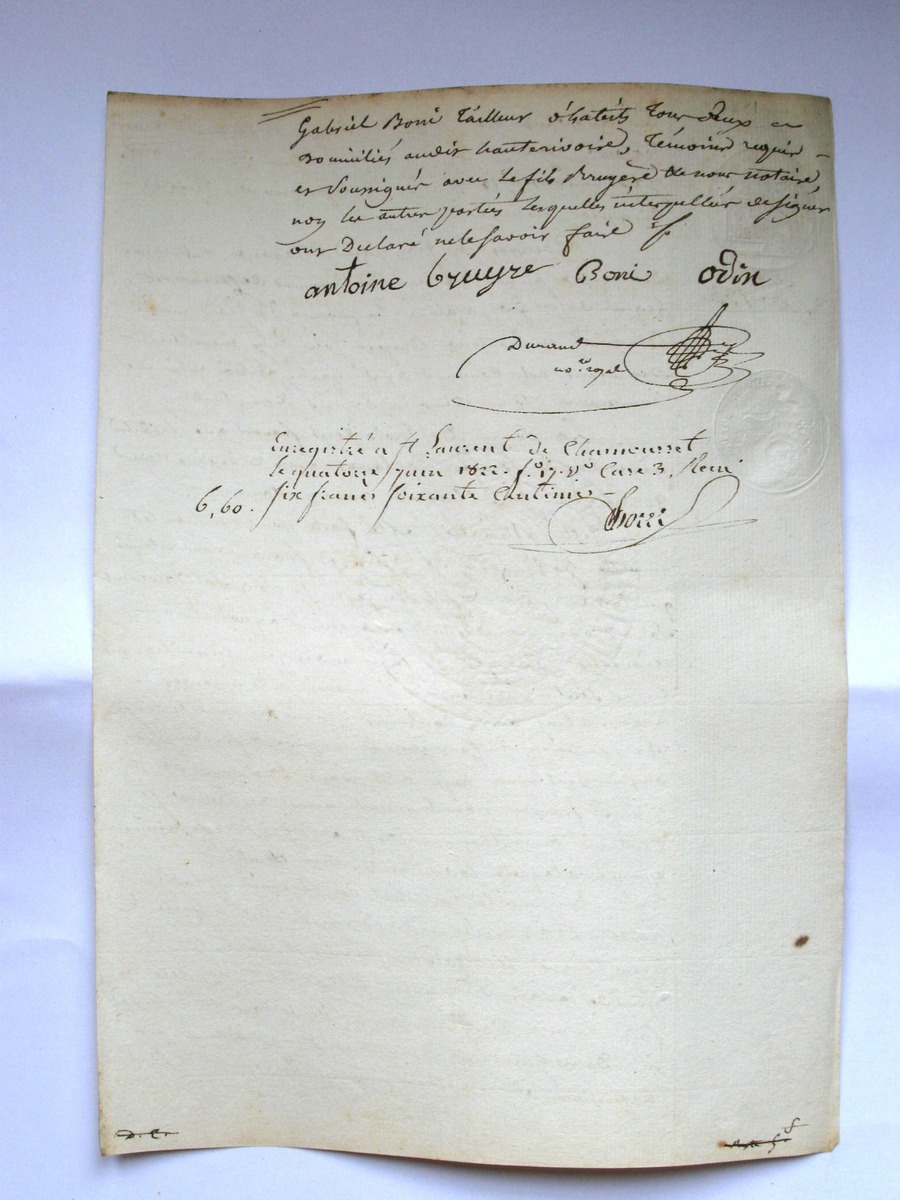 Gabriel Boni Tailleur d'habits Tous deux
domiciliés audit hauterivoire, Témoins requis
et Soussignés avec le fils Bruyere & nous notaire
non les autres parties lesquelles interpellées de signer
ont Déclaré ne le savoir faire
antoine bruyre Boni odin
Durand
no.re royal
Enregistré a St Laurent de Chamousset
le quatorze juin 1822. f.o 17. v.o Case 3, Recu
6,60. six francs soixante Centimes